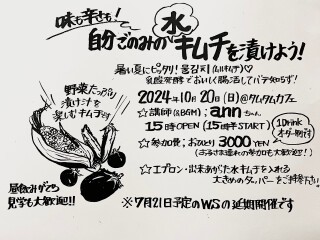 味も辛さも!
自分ごのみの水キムチを漬けよう!
暑い夏にピッタリ! 물김치(ムルキムチ)♡
乳酸発酵でおいしく腸活してバテ知らず!
野菜たっぷり
漬け汁を
楽しむキムチです
2024年10月20日(日)@タムタムカフェ
☆講師(&BGM): annちゃん
15時OPEN (15時半START)
1Drink
オーダー制です
☆参加費: おひとり 3000YEN
(お子さま連れの参加も大歓迎!)
☆エプロン・出来あがった水キムチを入れる
大きめのタッパーをご持参下さい!
昼飲みがてら
見学も大歓迎!!
※7月21日予定のWSの延期開催です